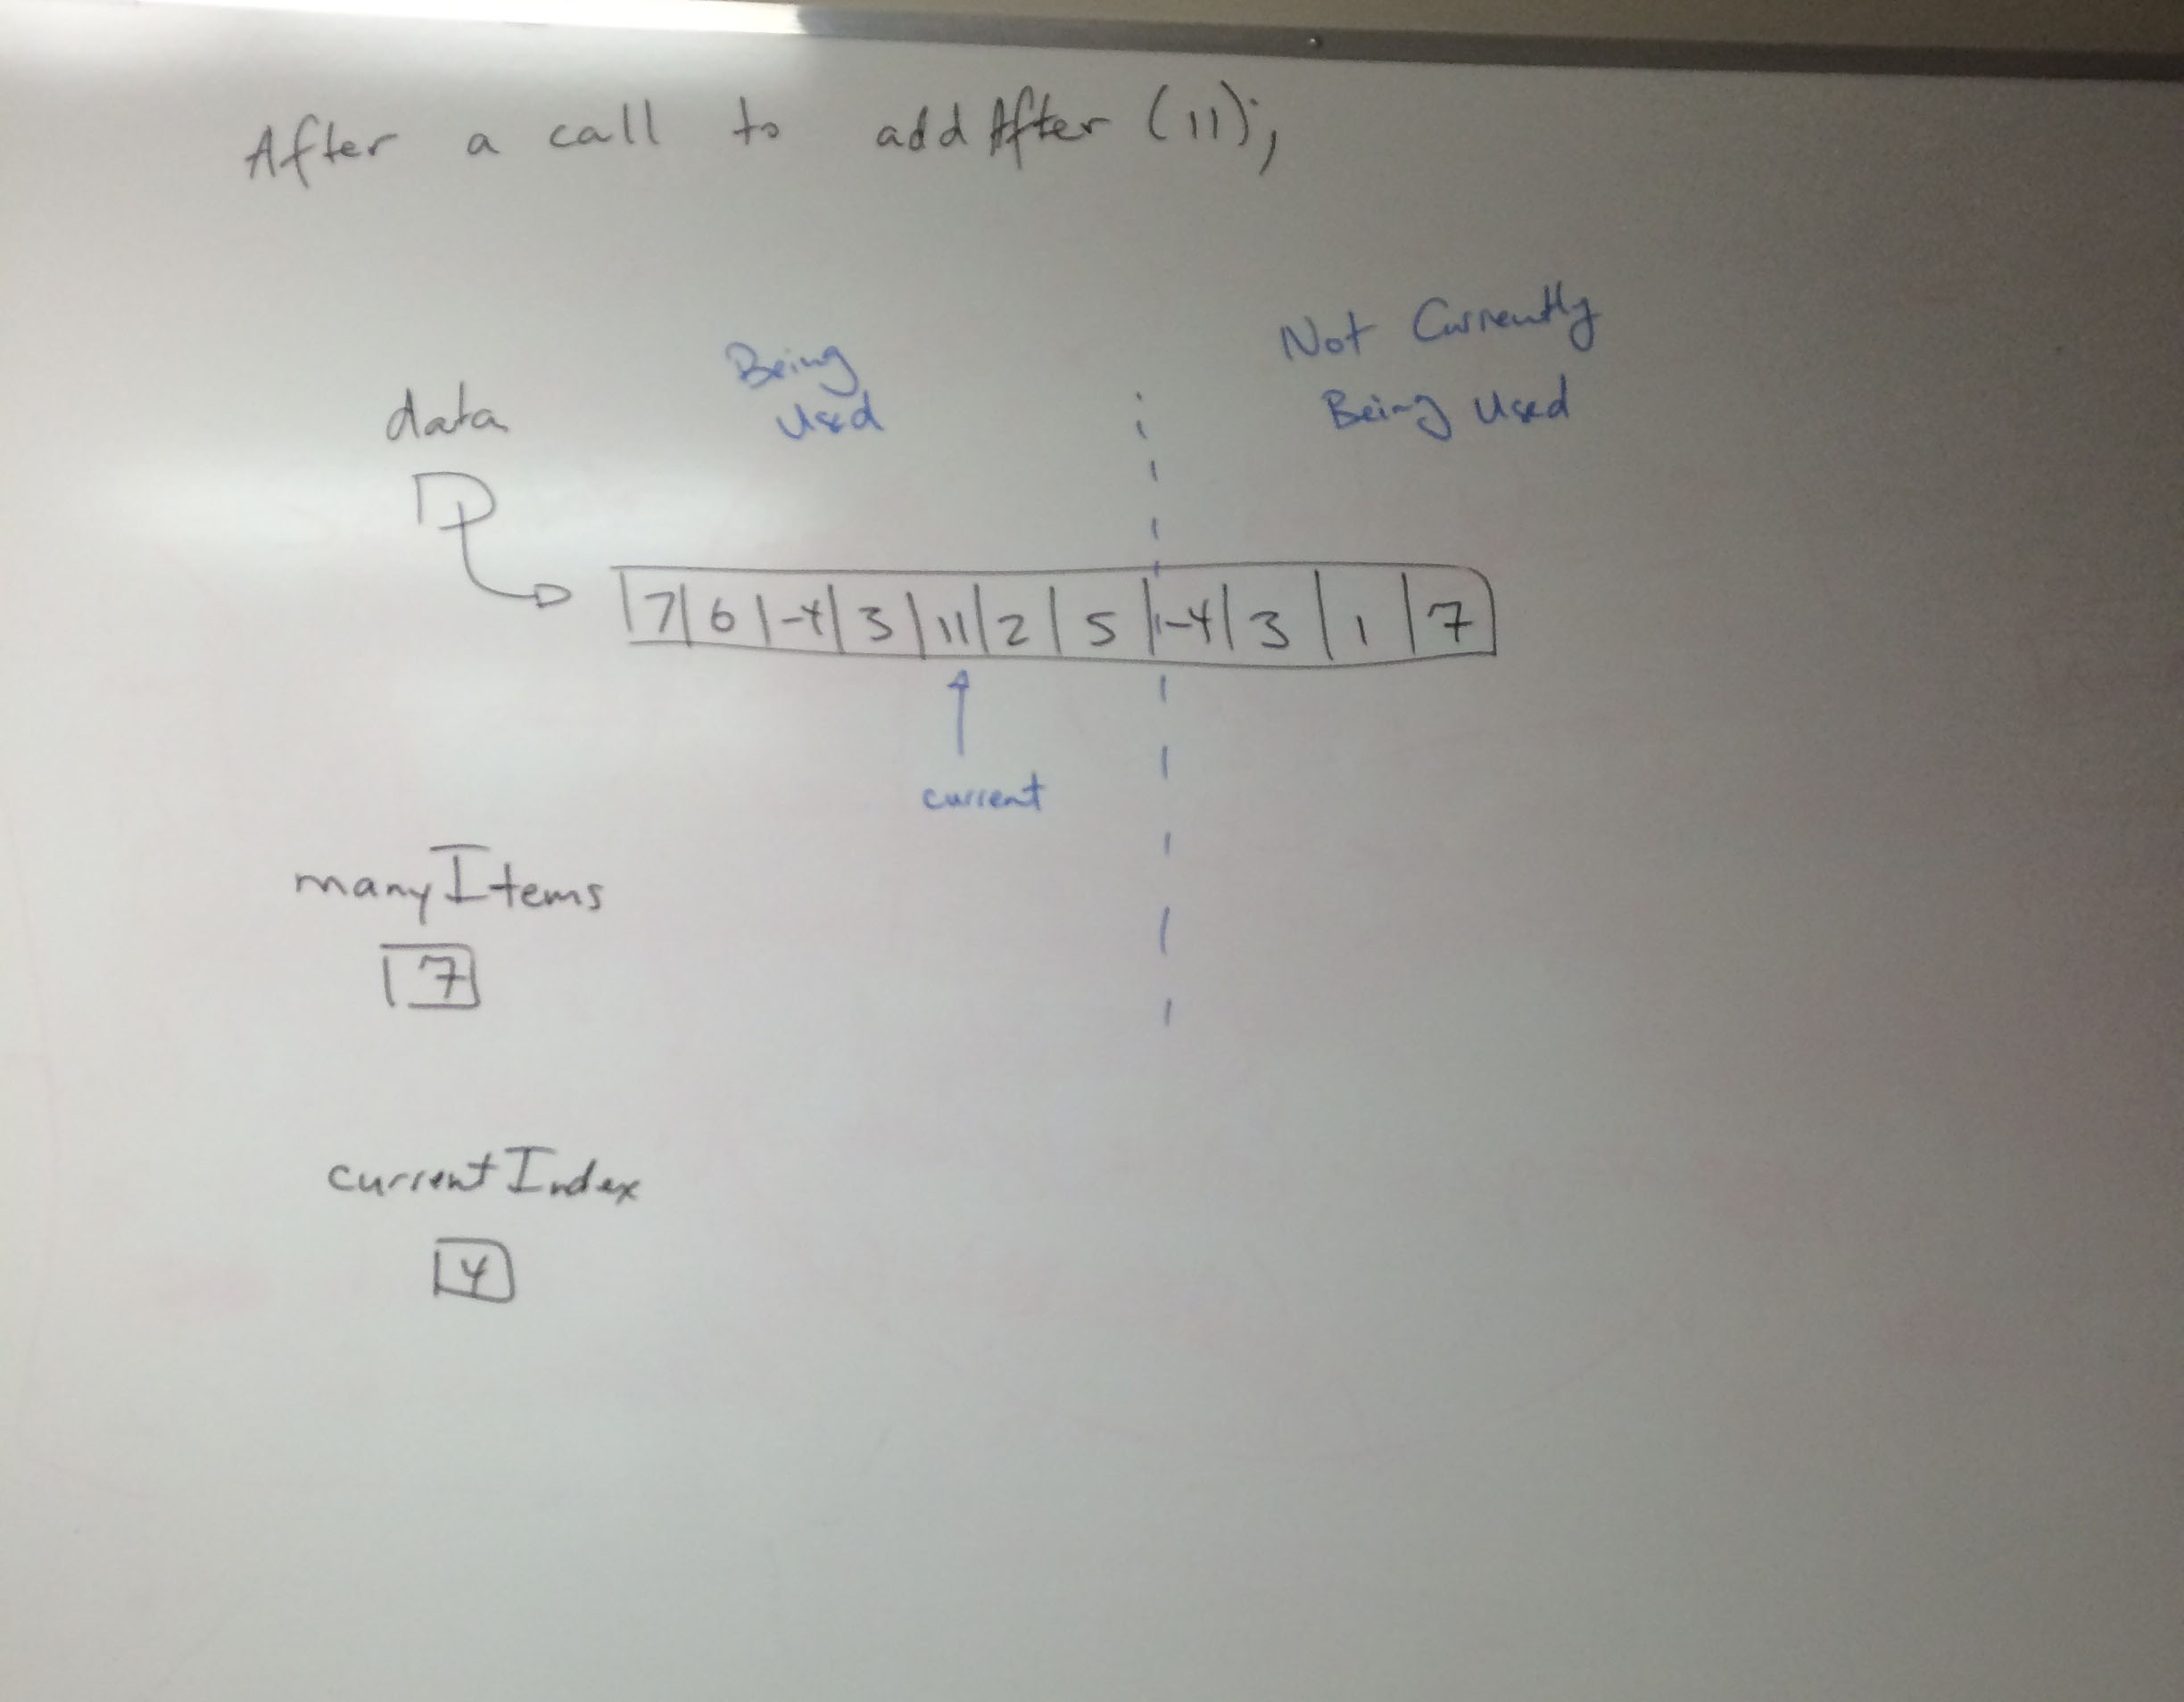 After a call to addAfter (11);
Not Currently
Being Used
Being
Used
data
7 6 -4 3 11 2 5 -4 3 1 7
current
manyItems
7
currentIndex
4